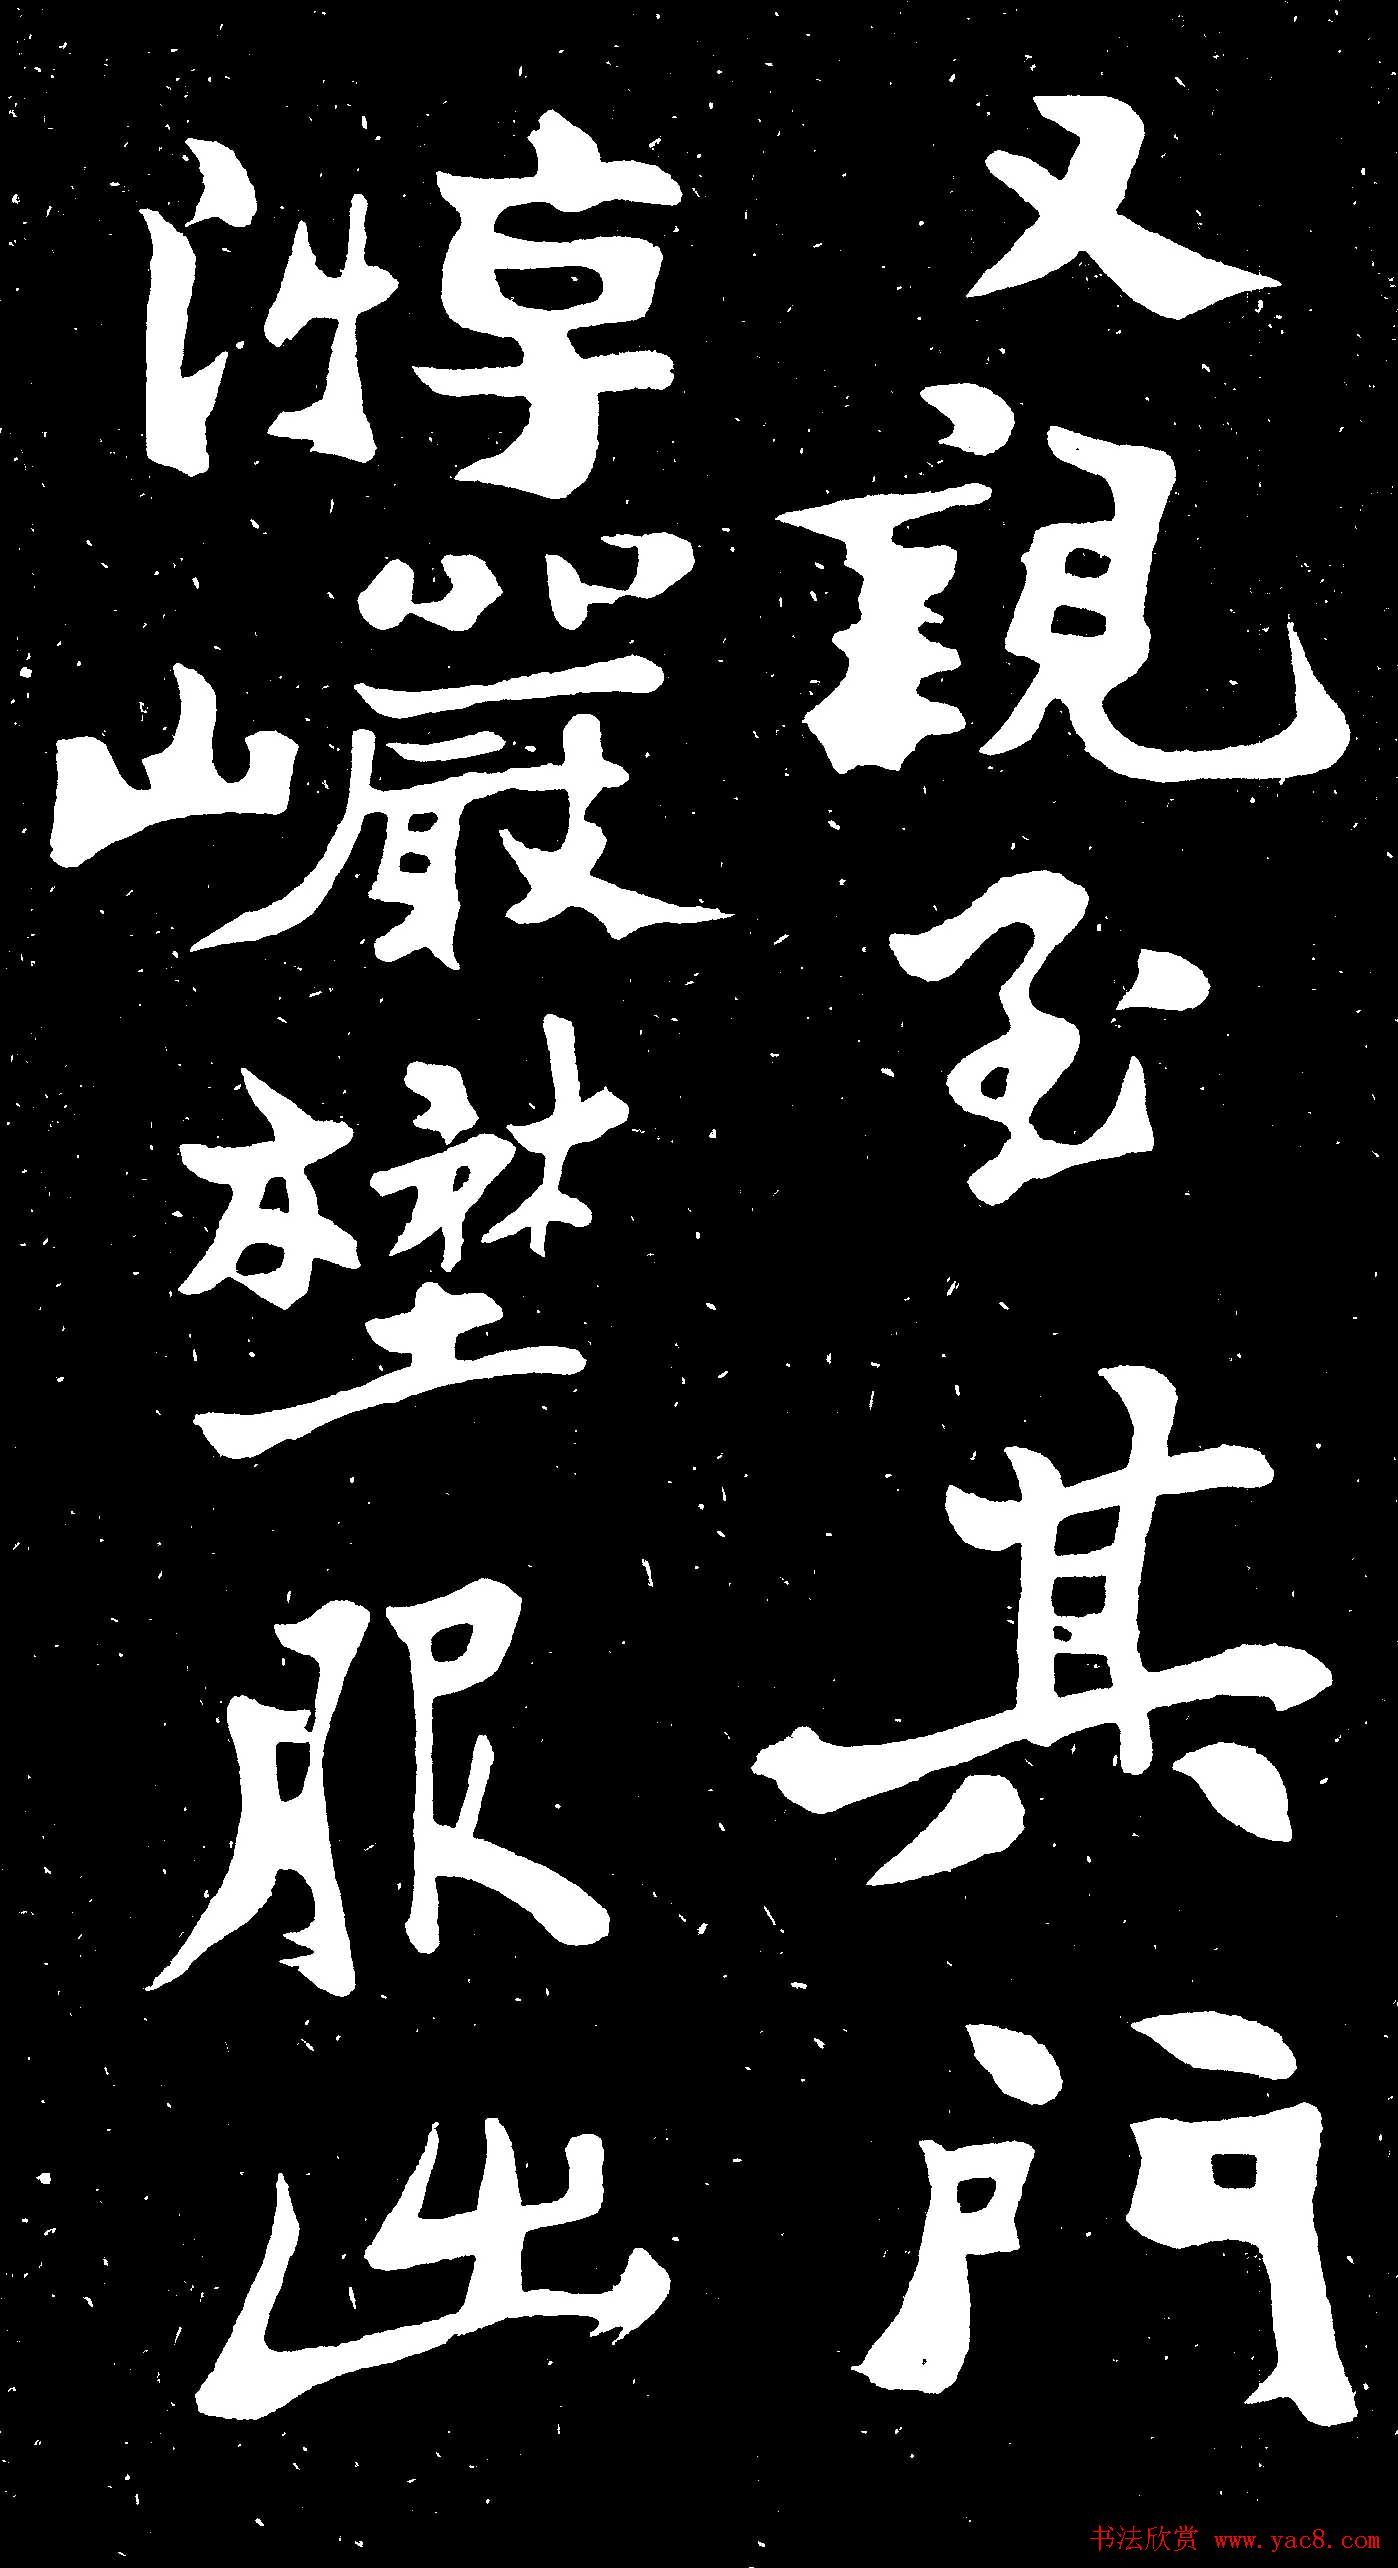 又親至其門
游巖壄服出
书法欣赏 www.yac8.com